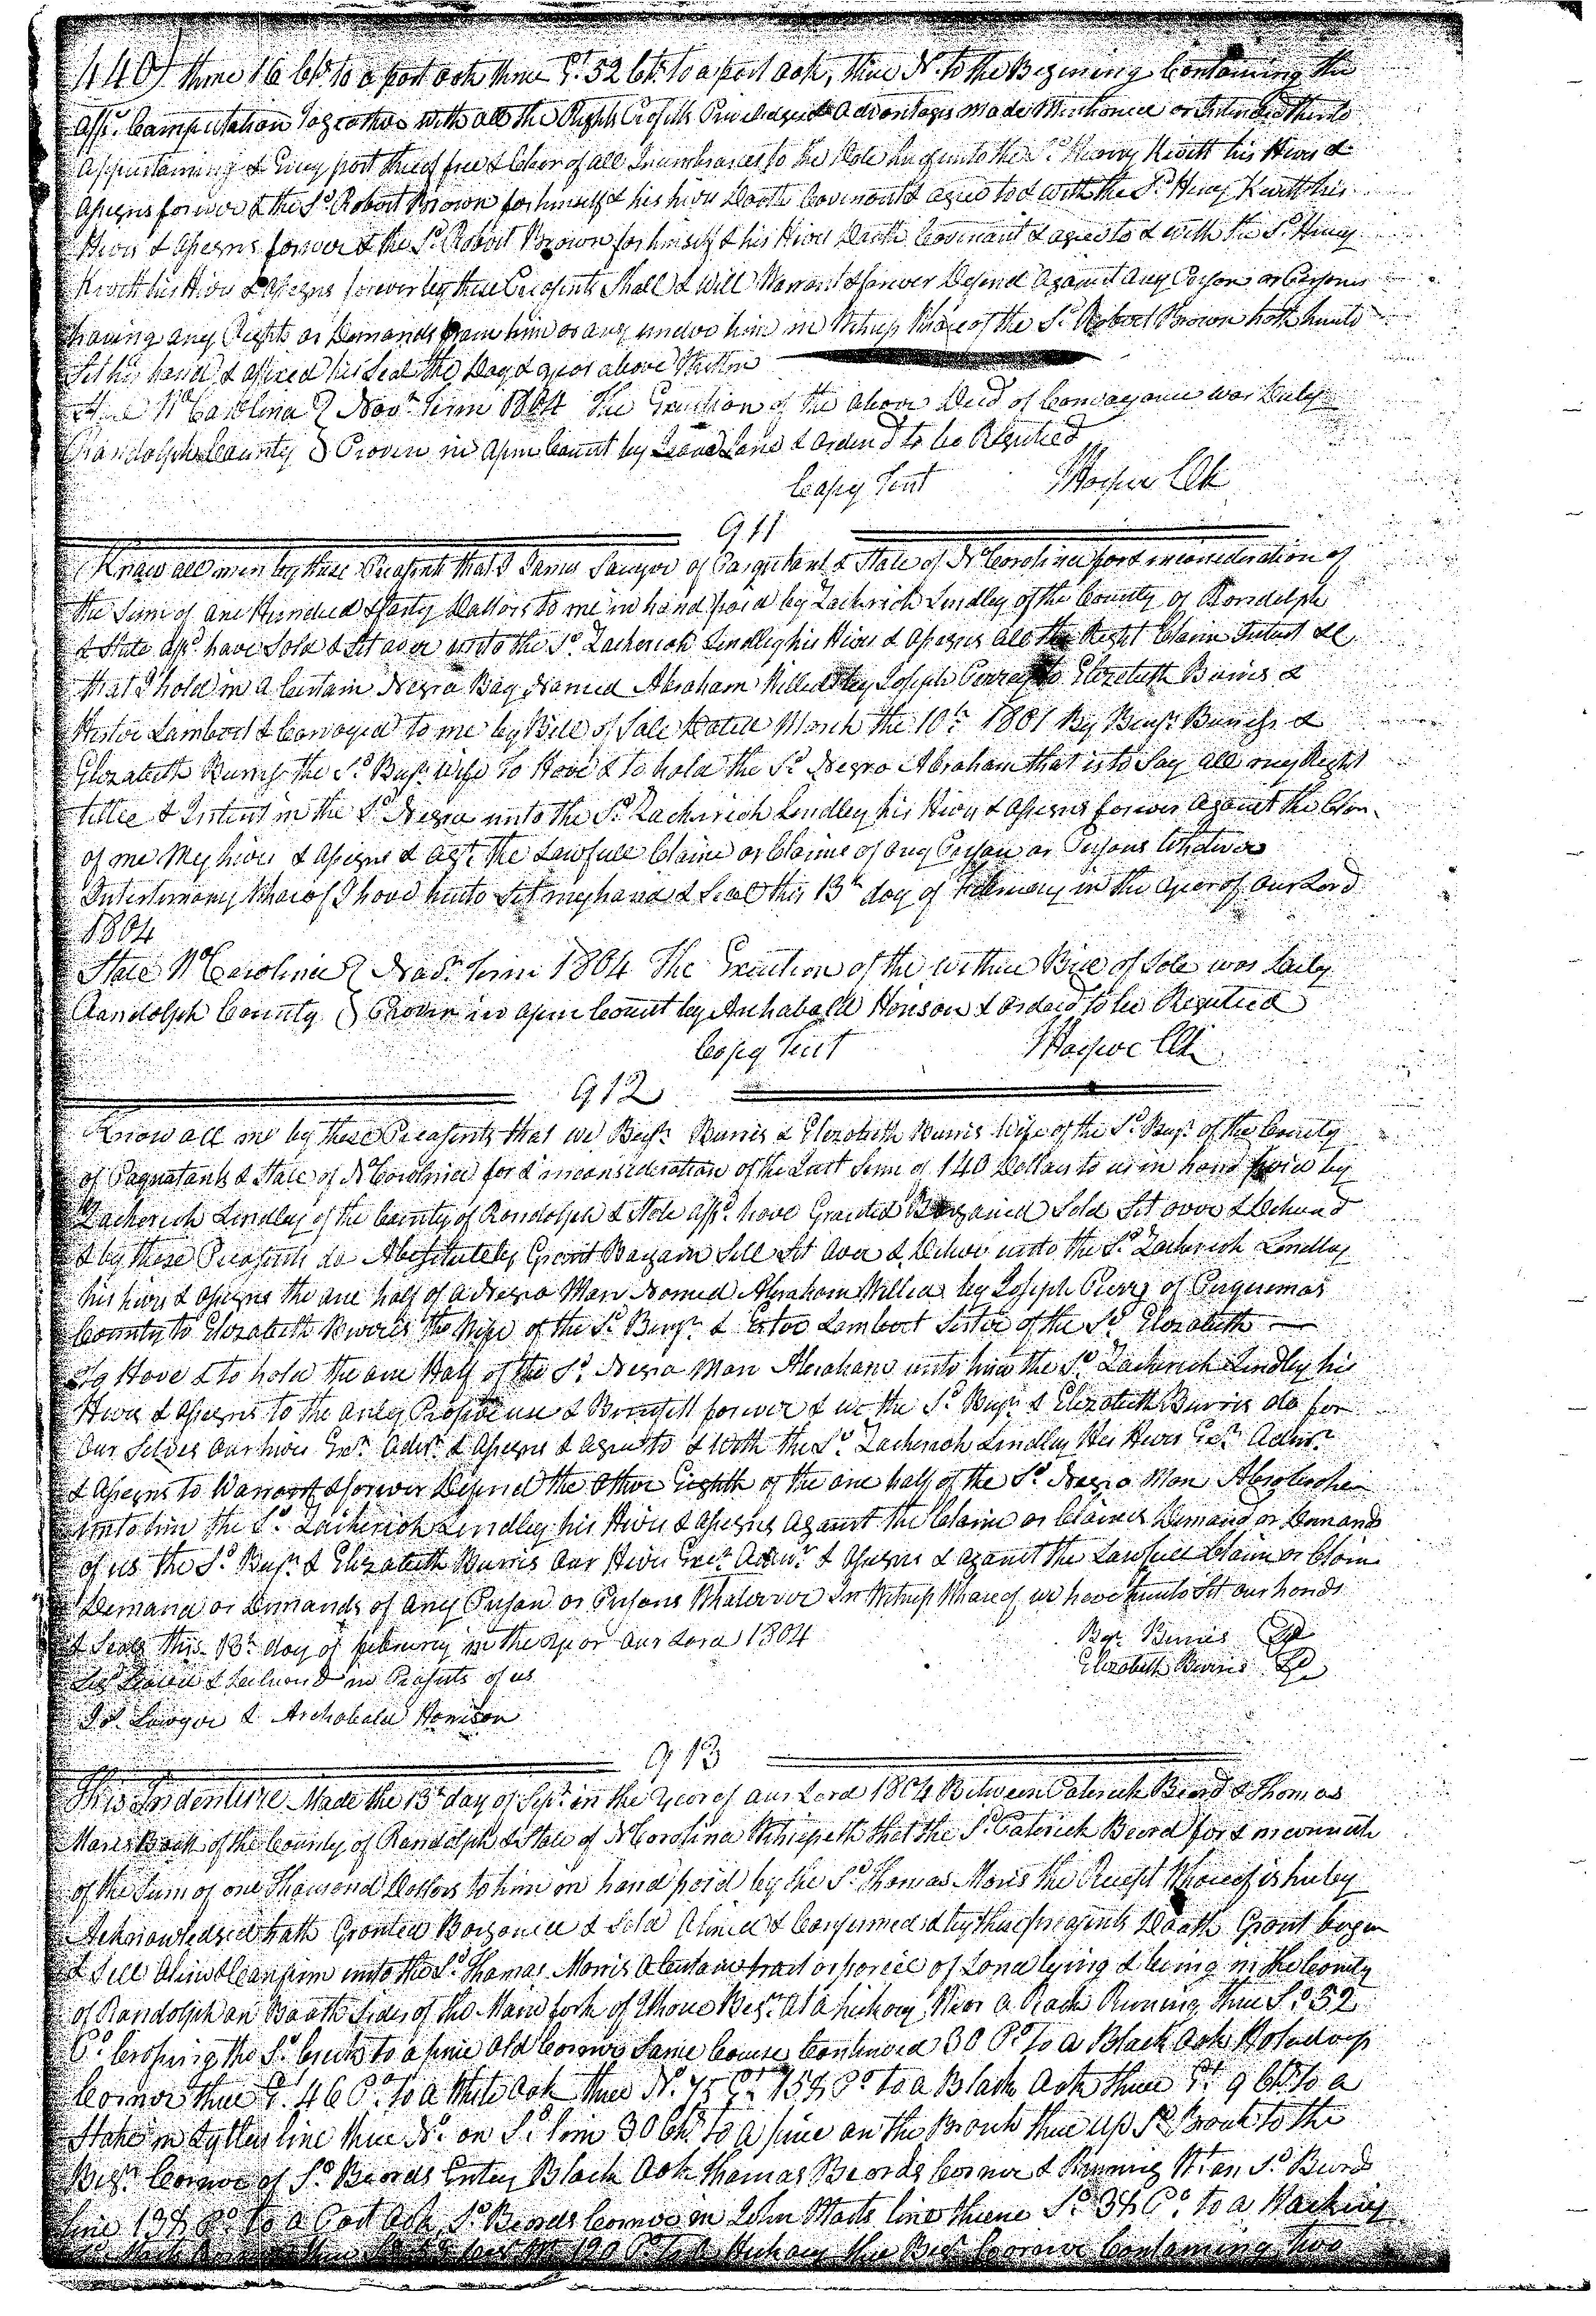 440) thence 16 chs to a post oak thence Et. 52 chs. to a post oak, thence No. to the Begining Containing the
affsd. Computation Togeather with all the Rights Profitts Priviledges & Advantages made Mentioned or Intended thereto
Appurtaining & Every part thereof free & Clear of all Incumbrances to the Sole use of unto the Sd. Henry Kivett his Heirs &
Assigns forever & the Sd. Robert Brown for himself & his heirs Doath Covenant & agree to & with the Sd. Henry Kivett his
Heirs & Assigns forever & the Sd. Robert Brown for himself & his Heirs Doath Covenant & agree to & with the Sd. Henry
Kivett his Heirs & Assigns forever by these Presents Shall & will Warrant & forever Defend Against Any Person or Persons
having any Right or Demands from him or any under him in Witness Whareof the Sd. Robert Brown hath hunto
Set his hand & affixed his Seal the Day & year above Written
State No Carolina } Novr. Term 1804 The Execution of the above Deed of Convayance was Duly
Randolph County } Proven in open Court by Lane & Orderd to be Registred
Copy Test JHarper Clk
911
Know all men by these Presents that I Sawyer of Pasquetank & State of No Carolina for & in consideration of
the Sum of one Hundred & forty Dollars to me in hand paid by Zacherich Lindley of the County of Randolph
& State affsd. have Sold & Set over unto the Sd. Zacherich Lindley his Heirs & Assigns all the Right Claim Intrust &c
that I hold in a Certain Negro Boy Named Abraham Willed by Joseph Perry to Elizabeth Burris &
Lambert & Convayed to me by Bill of Sale Dated March the 10th. 1801 By Benjn. Burris &
Elizabeth Burris the Sd. Benjn. wife To Have & to hold the Sd. Negro Abraham that is to Say all my Right
tittle & Intrust in the Sd. Negro unto the Sd. Zacherich Lindley his Heirs & Assigns forever Against the Clam
of me My heirs & Assigns & agt. the Lawfull Claim or Claims of any Person or Persons Whatever
In testimony Whareof I have hunto Set my hand & Seal this 13th day of February in the year of our Lord
1804
State No Carolina } Novr. Term 1804 The Execution of the within Bill of Sale was Duly
Randolph County } Proven in open Court by Archabald Horison & Orderd to be Registred
Copy Test JHarper Clk
912
Know all me by these Presents that we Benjn. Burris & Elizabeth Burris Wife of the Sd. Benjn. of the County
of Pasquatank & State of No Carolina for & in consideration of the Just Sum of 140 Dollars to us in hand paid by
Zacherich Lindley of the County of Randolph & State affsd. have Granted Bargained Sold Set over & Delivered
& by these Presents do Absolutely Grant Bargain Sell Set over & Deliver unto the Sd. Zacherich Lindley
his heirs & Assigns the one half of a Negro Man Named Abraham Willed by Joseph Perry of Perquemas
County to Elizabeth Burris the Wife of the Sd. Benjn. & Ester Lambert Sister of the Sd. Elizabeth
To Have & to hold the one Half of the Sd. Negro Man Abraham unto him the Sd. Zacherich Lindley his
Heirs & Assigns to the only Proper use & Benefitt forever & we the Sd. Benjn. & Elizabeth Burris do for
Our Selves Our heirs Exr. Admr. & Assigns & agree to & with the Sd. Zacherich Lindley His Heirs Exr. Admr.
& Assigns to Warrant & forever Defend the other Eighth of the one half of the Sd. Negro Man Abraham
unto him the Sd. Zacherich Lindley his Heirs & Assigns Against the Claim or Claimes Demand or Demands
of us the Sd. Benjn. & Elizabeth Burris Our Heirs Exr. Admr. & Assigns & against the Lawfull Claim or Claim
Demand or Demands of any Person or Persons Whatever In Witness Whareof we have hunto Set our hands
& Seals this 13th. day of February in the year our Lord 1804 Benjn. Burris
in Presents of us Elizabeth Burris
Sawyer & Archabald Horison
913
This Indenture Made the 13th day of Sept. in the year of our Lord 1804 Between Paterick Beard & Thomas
Moris Boath of the County of Randolph & State of No Carolina Witnesseth that the Sd. Paterick Beard for &
of the Sum of one Thousand Dollars to him in hand paid by the Sd. Thomas Moris the Receipt Whareof is huby
Acknowledged hath Granted Bargained & Sold Aliened & Confirmed & by these presents Doath Grant bargan
& Sell Alien & Confirm unto the Sd. Thomas Morris a Certain tract or parcel of Land lying & being in the County
of Randolph on Boath Sides of the Main fork of Begn. at a hickory Near a Rack Running thence So. 52
Po. Crossing the Sd. Creek to a pine old Corner Same Course Continued 30 Po. to a Black oak
Corner thence Et. 46 Po. to a White oak thence No. 75 Et. 158 Po. to a Black Oak thence Et. 9 Chs to a
Stake in line thence No. on Sd. line 30 Chs to a pine on the Branch thence up Sd. Branch to the
Begn. Corner of Sd. Beards Entry Black Oak Thomas Beards Corner & Running Wt. on Sd. Beards
line 138 Po. to a Post Oak Sd. Beards Corner in John line thence So. 38 Po. to a
190 Po. to a Hickory the Begn. Cornive Containing two